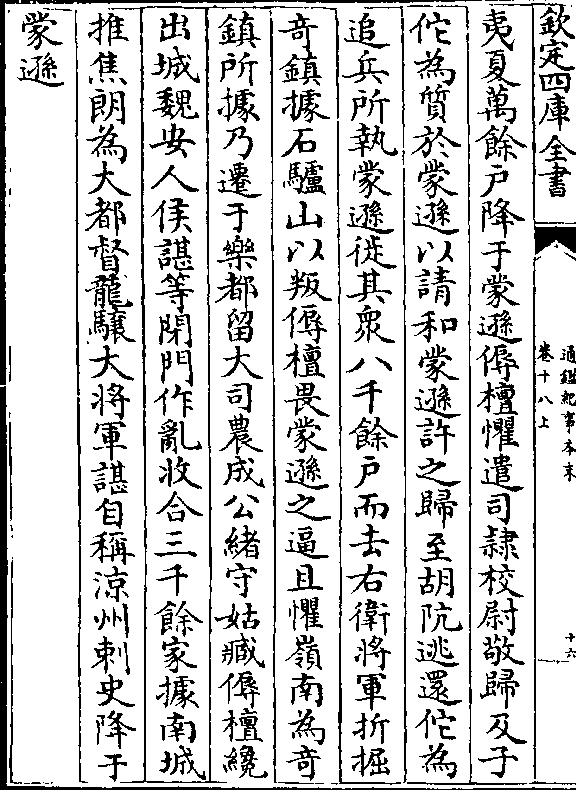 欽定四庫全書
通鑑紀事本末
卷十八上
十六
夷夏萬餘戶降于蒙遜傉檀懼遣司隸校尉敬歸及子
佗為質於蒙遜以請和蒙遜許之歸至胡阬逃還佗為
追兵所執蒙遜徙其衆八千餘戶而去右衛將軍折掘
奇鎮據石驢山以叛傉檀畏蒙遜之逼且懼嶺南為奇
鎮所據乃遷于樂都留大司農成公緒守姑臧傉檀纔
出城魏安人侯諶等閉門作亂收合三千餘家據南城
推焦朗為大都督龍驤大將軍諶自稱涼州刺史降于
蒙遜